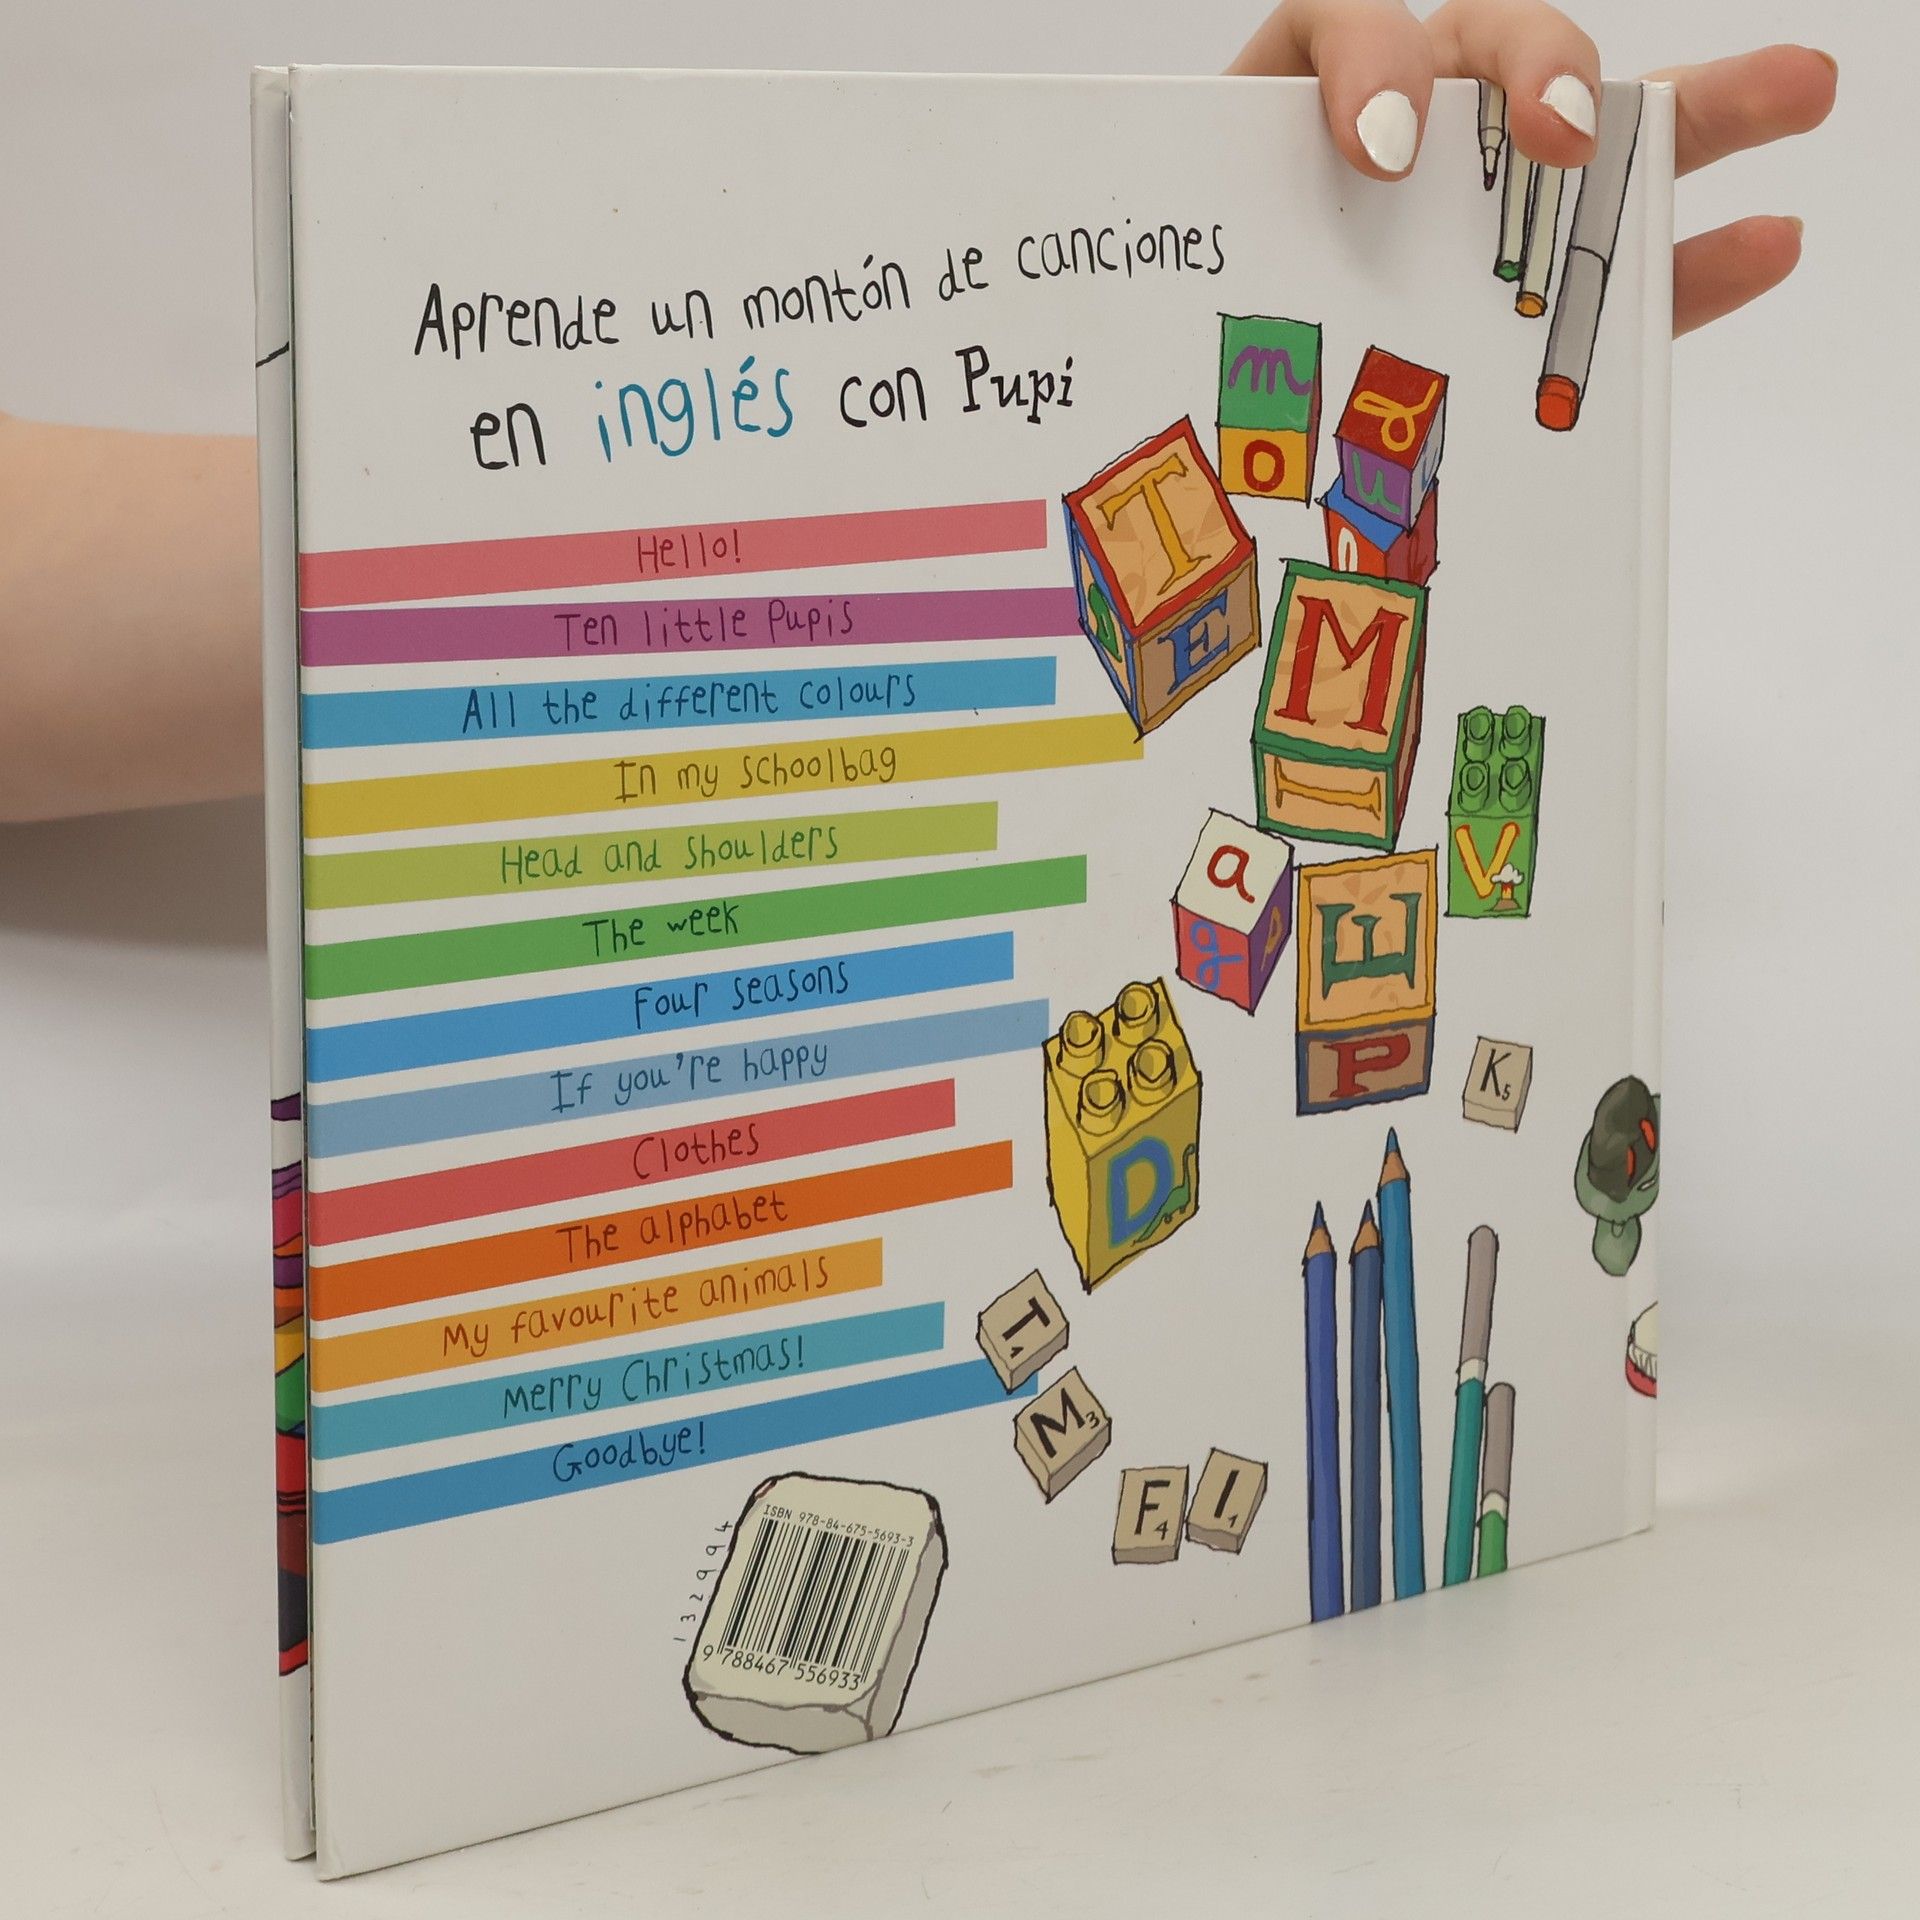 Aprende un montón de canciones
en inglés con Pupi
Hello!
Ten little Pupis
All the different colours
In my schoolbag
Head and shoulders
The week
Four seasons
If you're happy
Clothes
The alphabet
My favourite animals
Merry Christmas!
Goodbye!
m
o
T
E
M
I
a
g
V
E
P
K5
D
T1
M3
F4
I1
ISBN 978-84-675-5693-3
132994
9 788467 556933